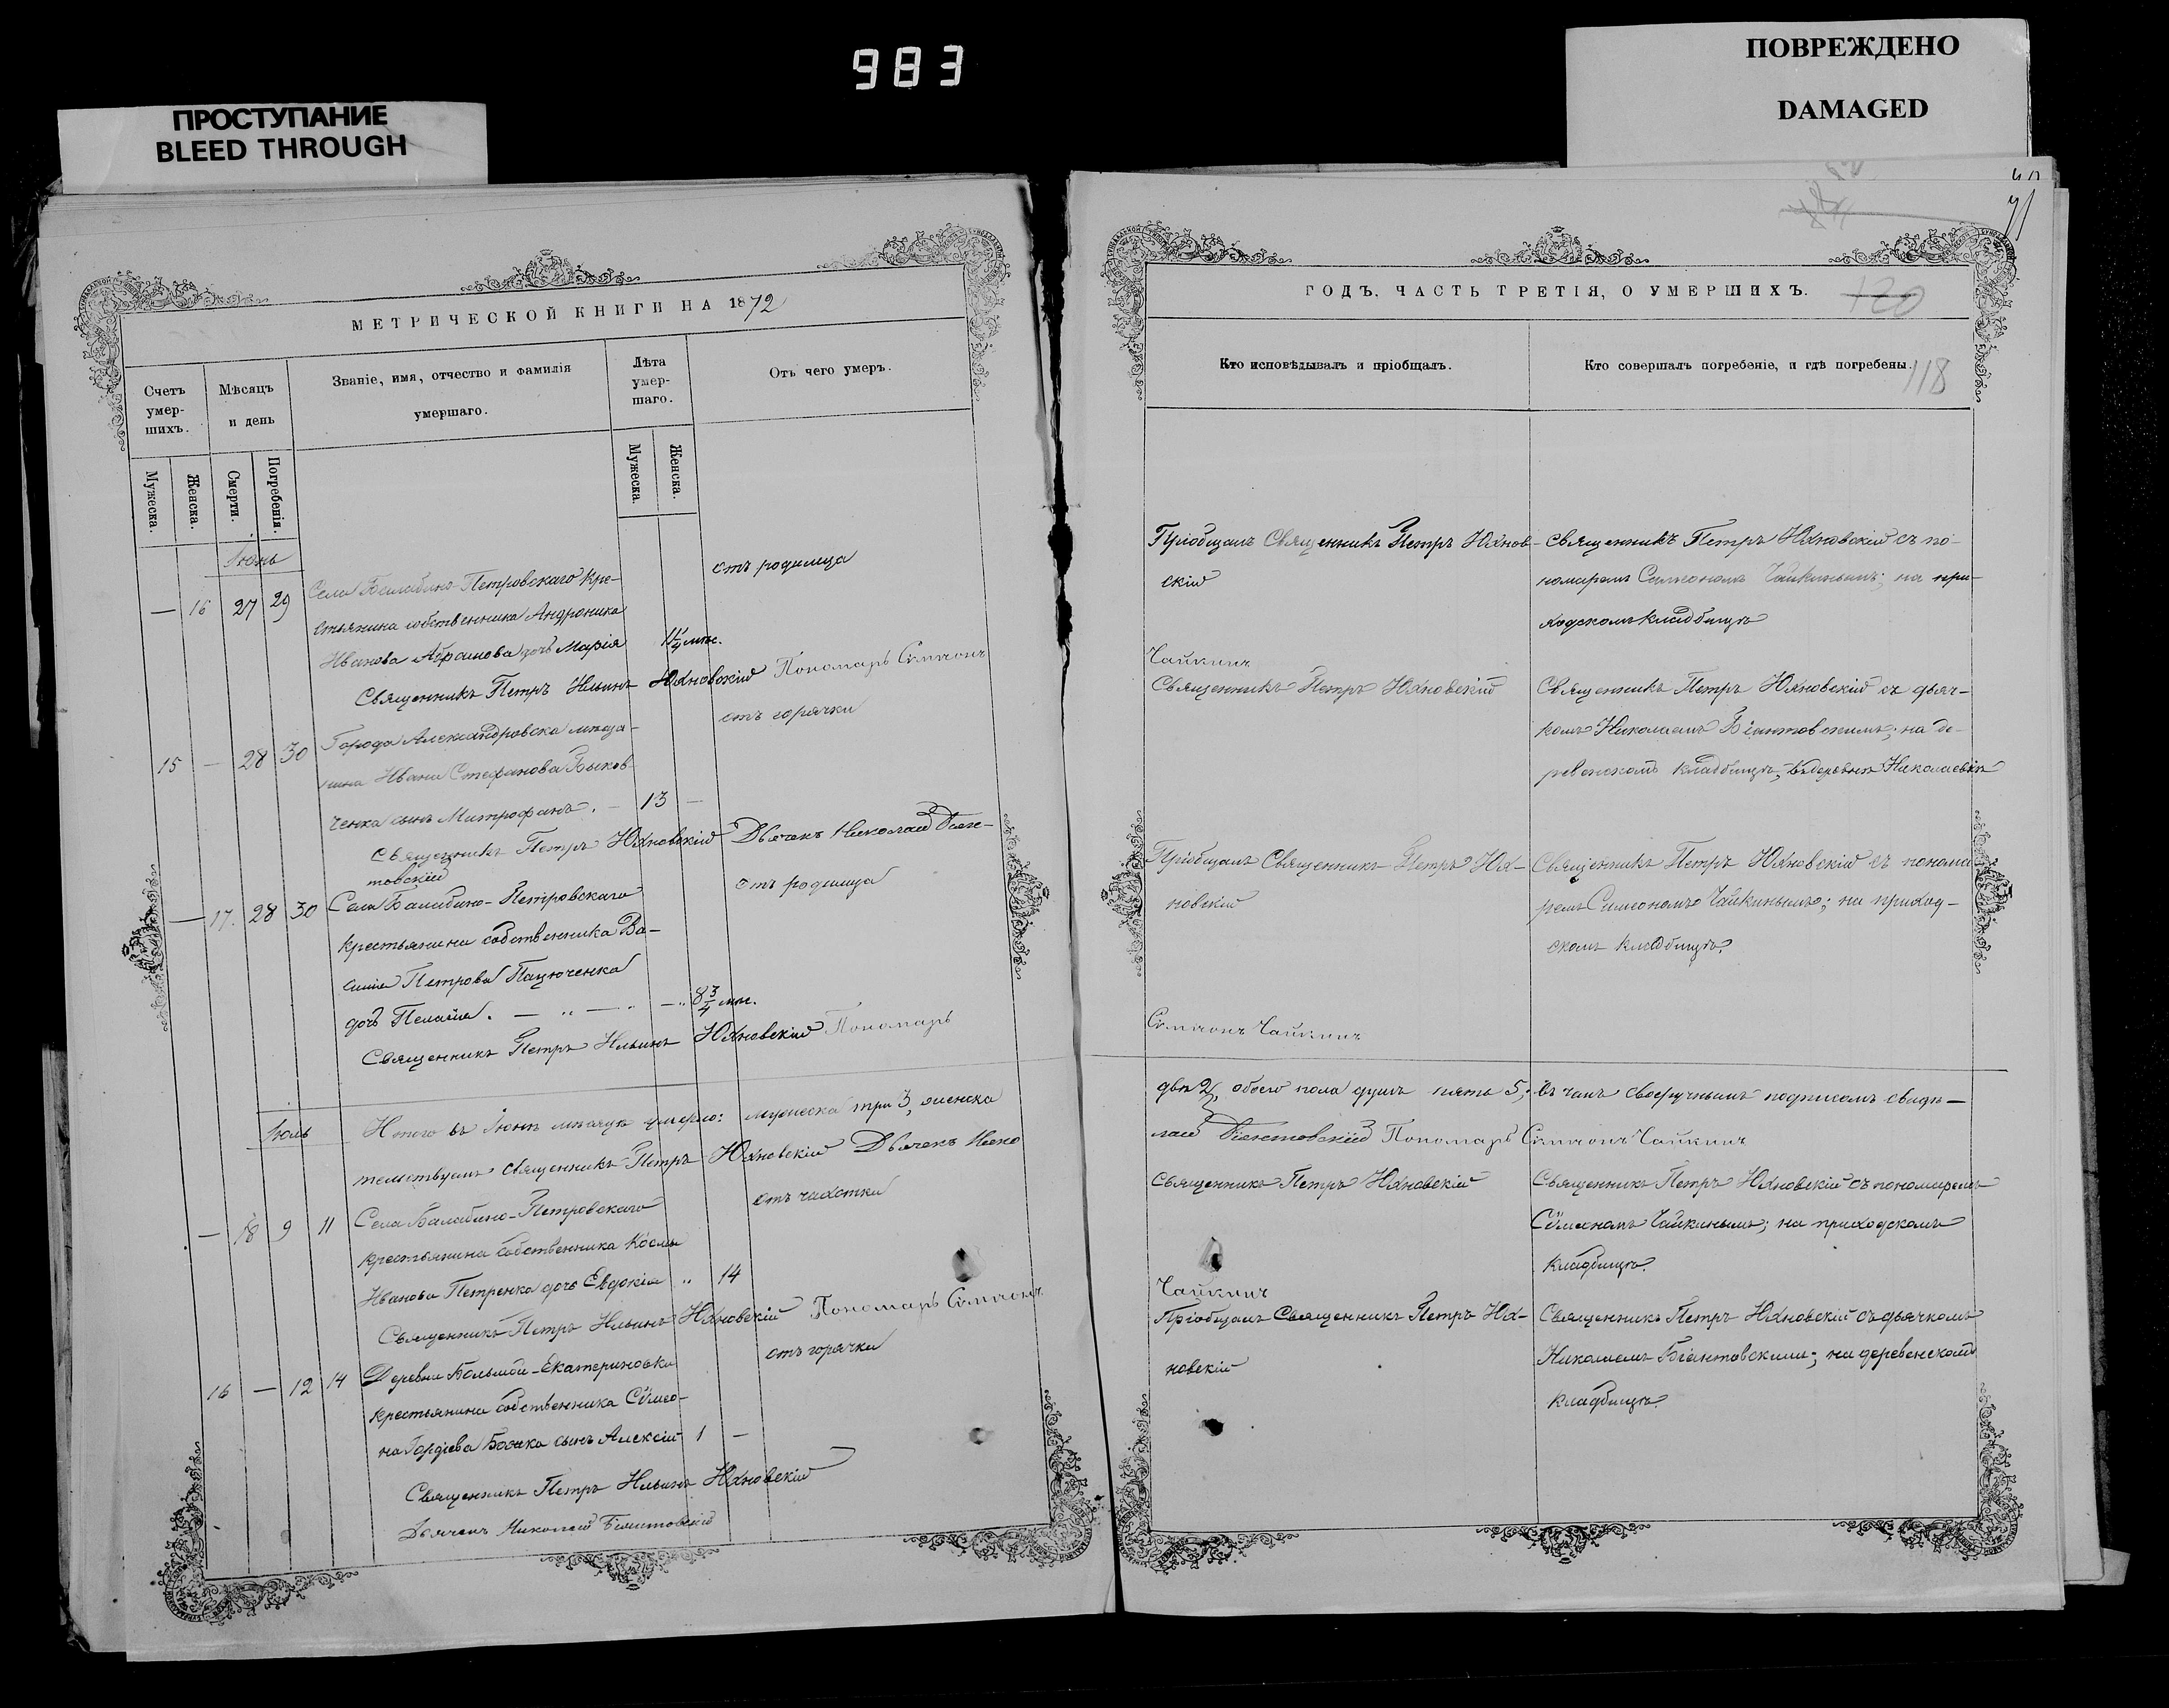 983
ПРОСТУПАНИЕ
BLEED THROUGH
ПОВРЕЖДЕНО
DAMAGED
МЕТРИЧЕСКОЙ КНИГИ НА 1872
Счетъ умер-шихъ.
Мѣсяцъ и день
Званіе, имя, отчество и фамилія умершаго.
Лѣта умер-шаго.
Отъ чего умеръ.
Мужеска.
Женска.
Смерти.
Погребенія.
Мужеска.
Женска.
Іюнь
— 16 27 29 Села Балабино-Петровскаго кре-
стьянина собственника Андроника
Иванова Абрамова дочь Марія
отъ родимца
Священникъ Петръ Ильинъ Юхновскій Пономарь Симеонъ
15 — 28 30 Города Александровска мѣща-
нина Ивана Стефанова Быков
ченка сынъ Митрофанъ. — 13 —
отъ горячки
Священникъ Петръ Юхновскій Дьячекъ Николай Біян-
товскій
— 17. 28 30 Села Балабино-Петровскаго
крестьянина собственника Ва-
силія Петрова Пацюченка
дочь Пелагія. — 8 3/4 мѣс.
отъ родимца
Священникъ Петръ Ильинъ Юхновскій Пономарь
Іюль
Итого въ Іюнѣ мѣсяцѣ умерло: мужеска три 3, женска
тельствуемъ Священникъ Петръ Юхновскій Дьячекъ Нико
— 18 9 11 Села Балабино-Петровскаго
крестьянина собственника Космы
Иванова Петренка дочь Евдокія „ 14
отъ чахотки
Священникъ Петръ Ильинъ Юхновскій Пономарь Симеонъ
16 — 12 14 Деревни Большой-Екатериновки
крестьянина собственника Сѵмео-
на Гордіева Божка сынъ Алексій 1 —
отъ горячки
Священникъ Петръ Ильинъ Юхновскій
Дьячекъ Николай Біянтовскій
ГОДЪ, ЧАСТЬ ТРЕТІЯ, О УМЕРШИХЪ.
120
118
Кто исповѣдывалъ и пріобщалъ.
Кто совершалъ погребеніе, и гдѣ погребены.
Пріобщалъ Священникъ Петръ Юхнов-
скій
Священникъ Петръ Юхновскій съ по-
номаремъ Симеономъ Чайкинымъ; на при-
ходскомъ кладбищѣ
Чайкинъ
Священникъ Петръ Юхновскій
Священникъ Петръ Юхновскій съ дьяч-
комъ Николаемъ Біянтовскимъ; на де-
ревенскомъ кладбищѣ, въ деревнѣ Николаевкѣ
Пріобщалъ Священникъ Петръ Юх-
новскій
Священникъ Петръ Юхновскій съ понома
ремъ Симеономъ Чайкинымъ; на приход-
скомъ кладбищѣ.
Симеонъ Чайкинъ
двѣ 2, обоего пола душъ пять 5; въ чемъ своеручнымъ подписомъ свидѣ-
лай Біянтовскій Пономарь Симеонъ Чайкинъ
Священникъ Петръ Юхновскій
Священникъ Петръ Юхновскій съ пономаремъ
Сѵмеономъ Чайкинымъ; на приходскомъ
кладбищѣ.
Чайкинъ
Пріобщалъ Священникъ Петръ Юх-
новскій
Священникъ Петръ Юхновскій съ дьячкомъ
Николаемъ Біянтовскимъ; на деревенскомъ
кладбищѣ.